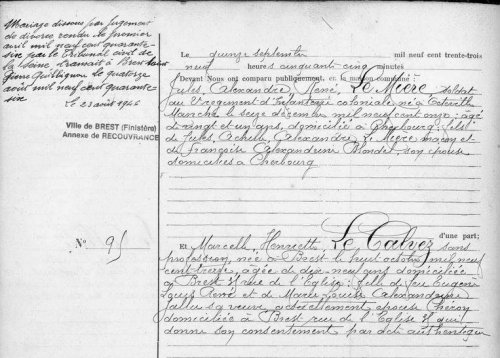 Mariage dissous par jugement
de divorce rendu le premier
avril mil neuf cent quarante-
six par le Tribunal civil de
la Seine, transcrit à Brest
le quatorze
août mil neuf cent quarante-
six
Le 23 août 1946
Ville de BREST (Finistère)
Annexe de RECOUVRANCE
N° 95
Le quinze septembre mil neuf cent trente-trois
neuf heures cinquante cinq minutes
Devant Nous ont comparu publiquement, en la maison commune :
Jules, Alexandre, René, Le Mière soldat
au régiment d'Infanterie coloniale, né à
Manche le seize décembre mil neuf cent onze ; âgé
de vingt et un ans, domicilié à Cherbourg ; fils
de Jules, Achille, Alexandre, Le Mière maçon et
de Françoise Alexandrine Blondel, son épouse
domiciliés à Cherbourg
d'une part ;
Et Marcelle, Henriette, Le Calvez sans
profession, née à Brest le huit octobre mil neuf
cent treize, âgée de dix neuf ans domiciliée
à Brest rue de l'Eglise ; fille de feu Eugène
Louis René et de Marie Louise Alexandrine
sa veuve, actuellement épouse
domiciliée à Brest, rue de l'Eglise qui
donne son consentement par acte authentique